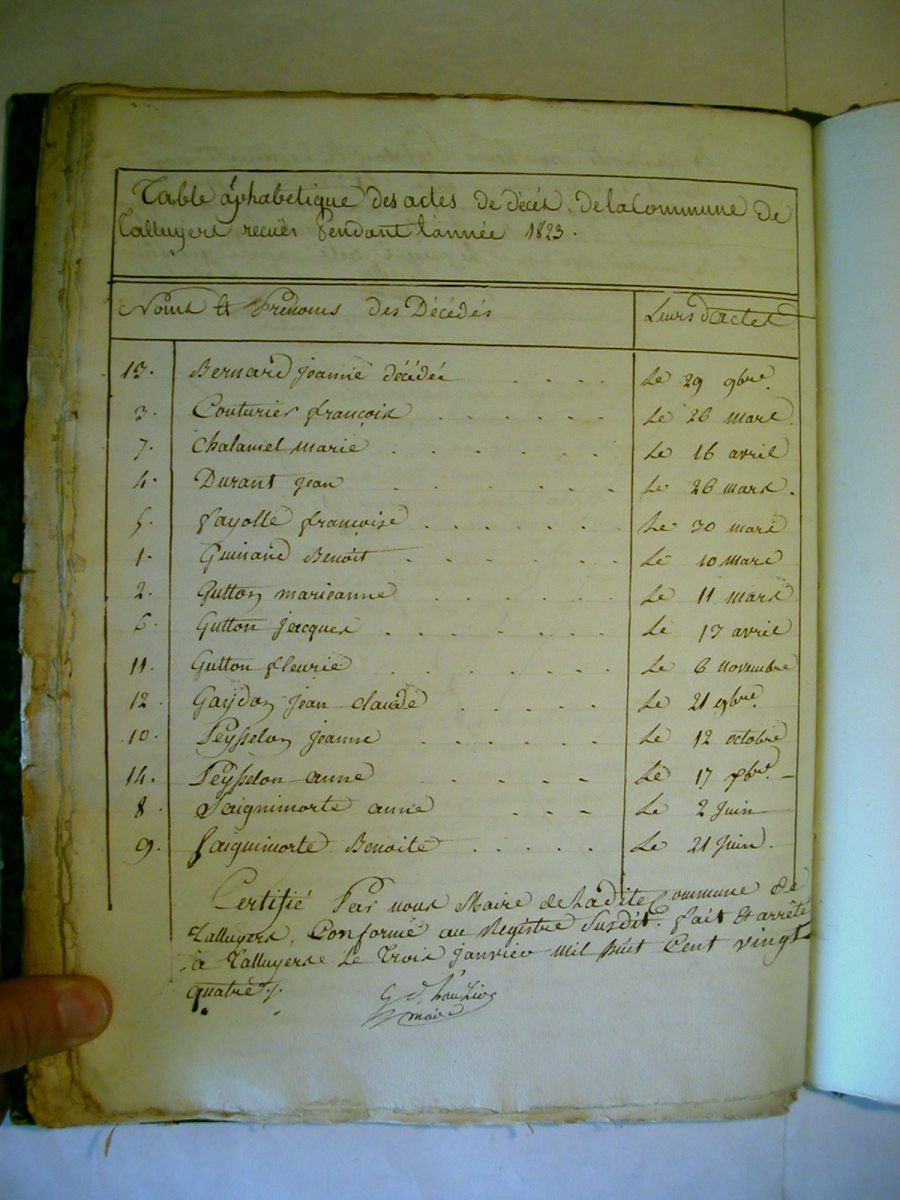 Table alphabetique des actes de décés de la Commune de
Talluyers recues pendant l'année 1823.
Noms et Prénoms des Décédés Leurs d'actes
13. Bernard jeanne décédée . . . . Le 29 9bre
3. Couturier françois . . . . . . Le 26 mars
7. Chalamel marie . . . . . . Le 16 avril
4. Durant jean . . . . . . Le 26 mars.
5. fayolle françoise . . . . . . Le 30 mars
1. Guinand Benoit . . . . . . Le 10 mars
2. Gutton marieanne . . . . . Le 11 mars
6. Gutton jacques . . . . . . . Le 17 avril
11. Gutton fleurie . . . . . . Le 6 novembre
12. Gaydon jean claude . . . . . Le 21 9bre.
10. Peysselon jeanne . . . . . . Le 12 octobre
14. Peysselon anne . . . . . Le 17 Xbre.
8. Saignimorte anne . . . Le 2 juin
9. Saignimorte Benoite . . . . . Le 21 juin.
Certifié Par nous Maire de Ladite Commune de
Talluyers, Conforme au Registre Susdit. fait et arrêté
à Talluyers Le Trois janvier mil huit Cent vingt
quatre.
maire